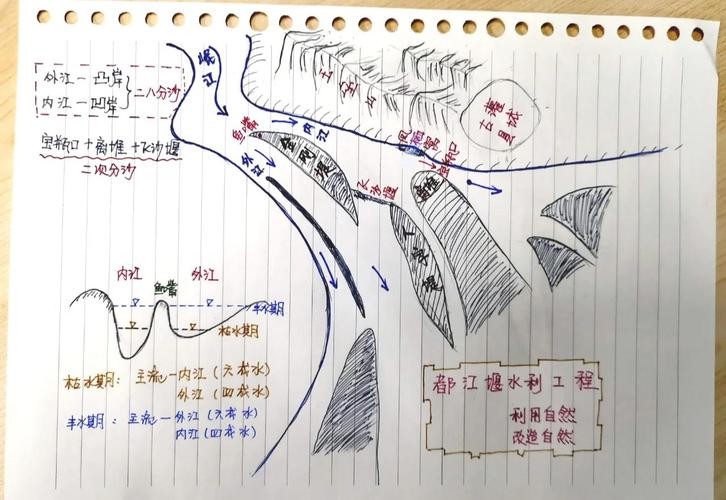 外江—凸岸
内江—凹岸
二八分沙
宝瓶口+离堆+飞沙堰
二次分沙
岷江
鱼嘴
内江
外江
金刚堤
玉垒山
灌城
古县
宝瓶口
飞沙堰
离堆
人字堤
内江
鱼嘴
外江
丰水期
枯水期
枯水期：主流—内江（六成水）
外江（四成水）
丰水期：主流—外江（六成水）
内江（四成水）
都江堰水利工程
利用自然
改造自然